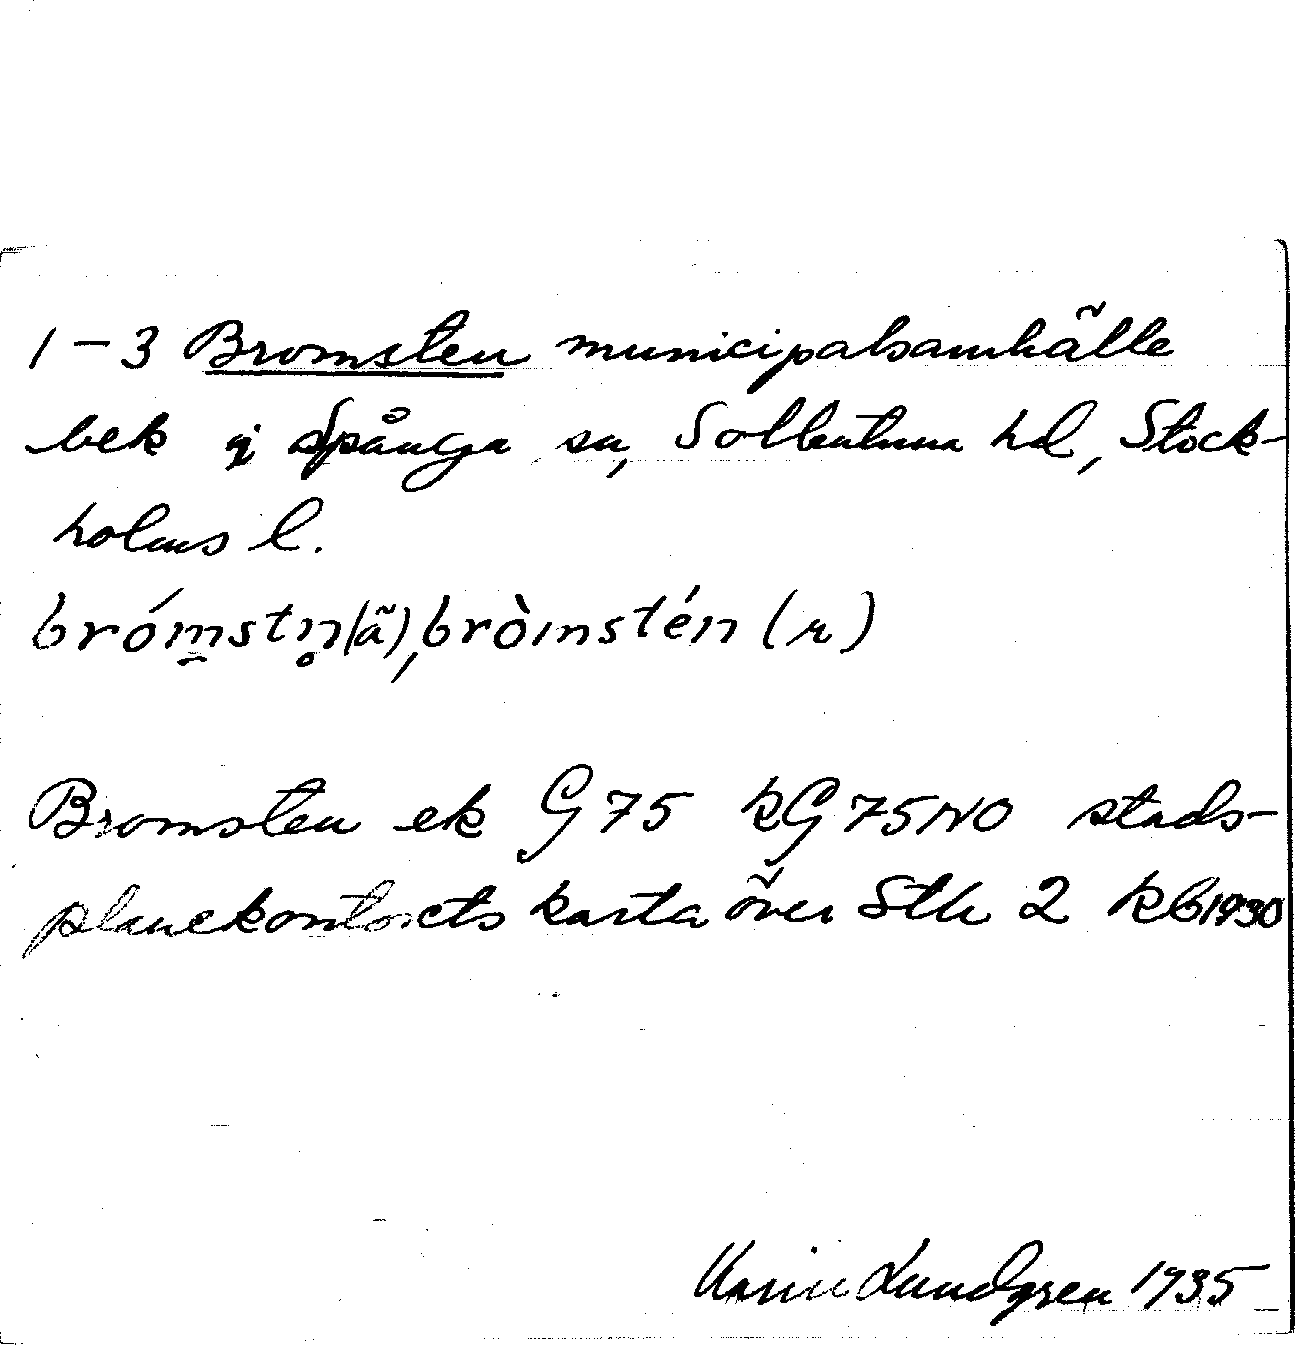 1-3 Bromsten municipalsamhälle
bek i Spånga sn, Sollentuna hd, Stock-
holms l.
brómstn̥(ä), bròmstén (r)
Bromsten ek G75 kG75NO stads-
planekontorets karta över Sth 2 kb1930
Karin Lundgren 1935